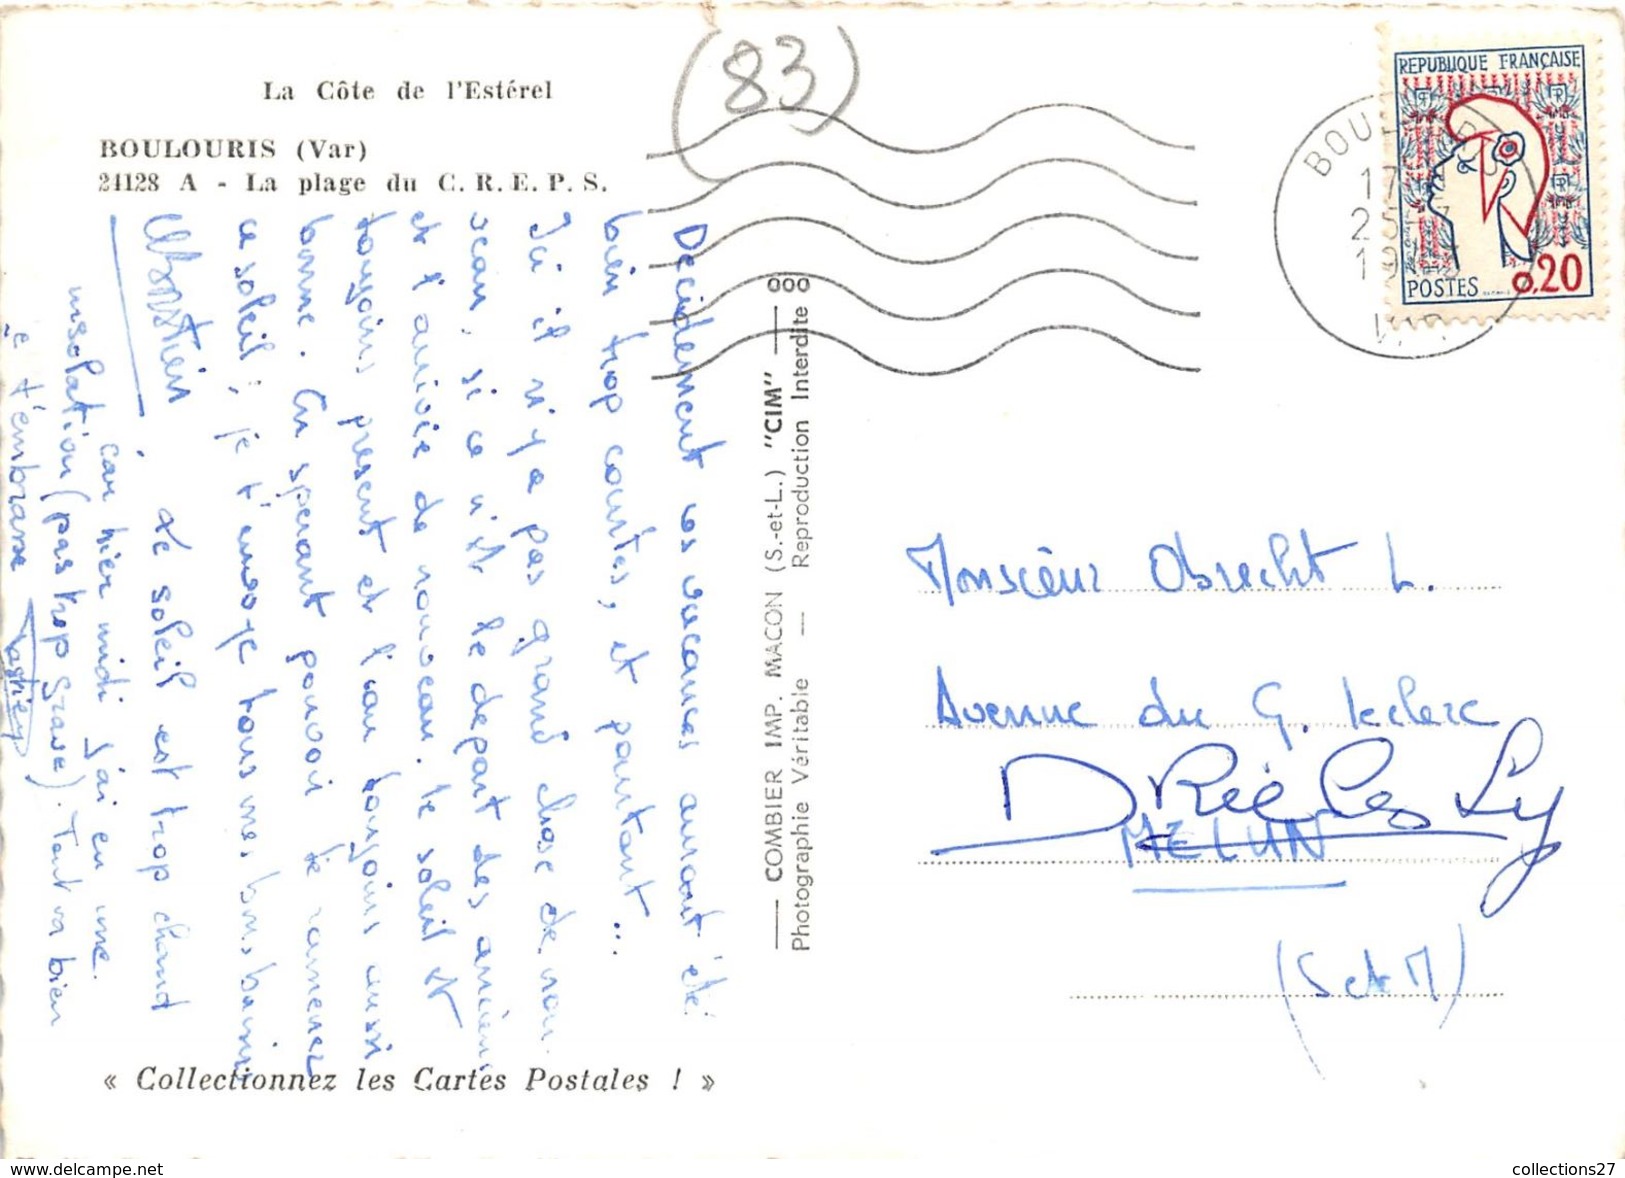 La Côte de l'Estérel
BOULOURIS (Var)
24128 A - La plage du C. R. E. P. S.
(83)
REPUBLIQUE FRANÇAISE
0,20
POSTES
17
25
19
VAR
Decidement ces vacances auront été
bien trop courtes, et pourtant...
Ici il n'y a pas grand chose de nou-
veau, si ce n'est le depart des anciens
et l'arrivée de nouveau. le soleil est
toujours present et l'eau toujours aussi
bonne. En sperant pouvoir te ramener
ce soleil ; je t'envoye tous mes bons baisers
Le soleil est trop chaud
car hier midi j'ai eu une
insolation (pas trop grave). Tout va bien
e t'embrasse
COMBIER IMP. MACON (S.-et-L.) "CIM"
Photographie Véritable — Reproduction Interdite
Monsieur Obrecht L.
Avenue du G. Leclerc
DRie Les Ly
MELUN
(S et M)
« Collectionnez les Cartes Postales ! »
www.delcampe.net
collections27